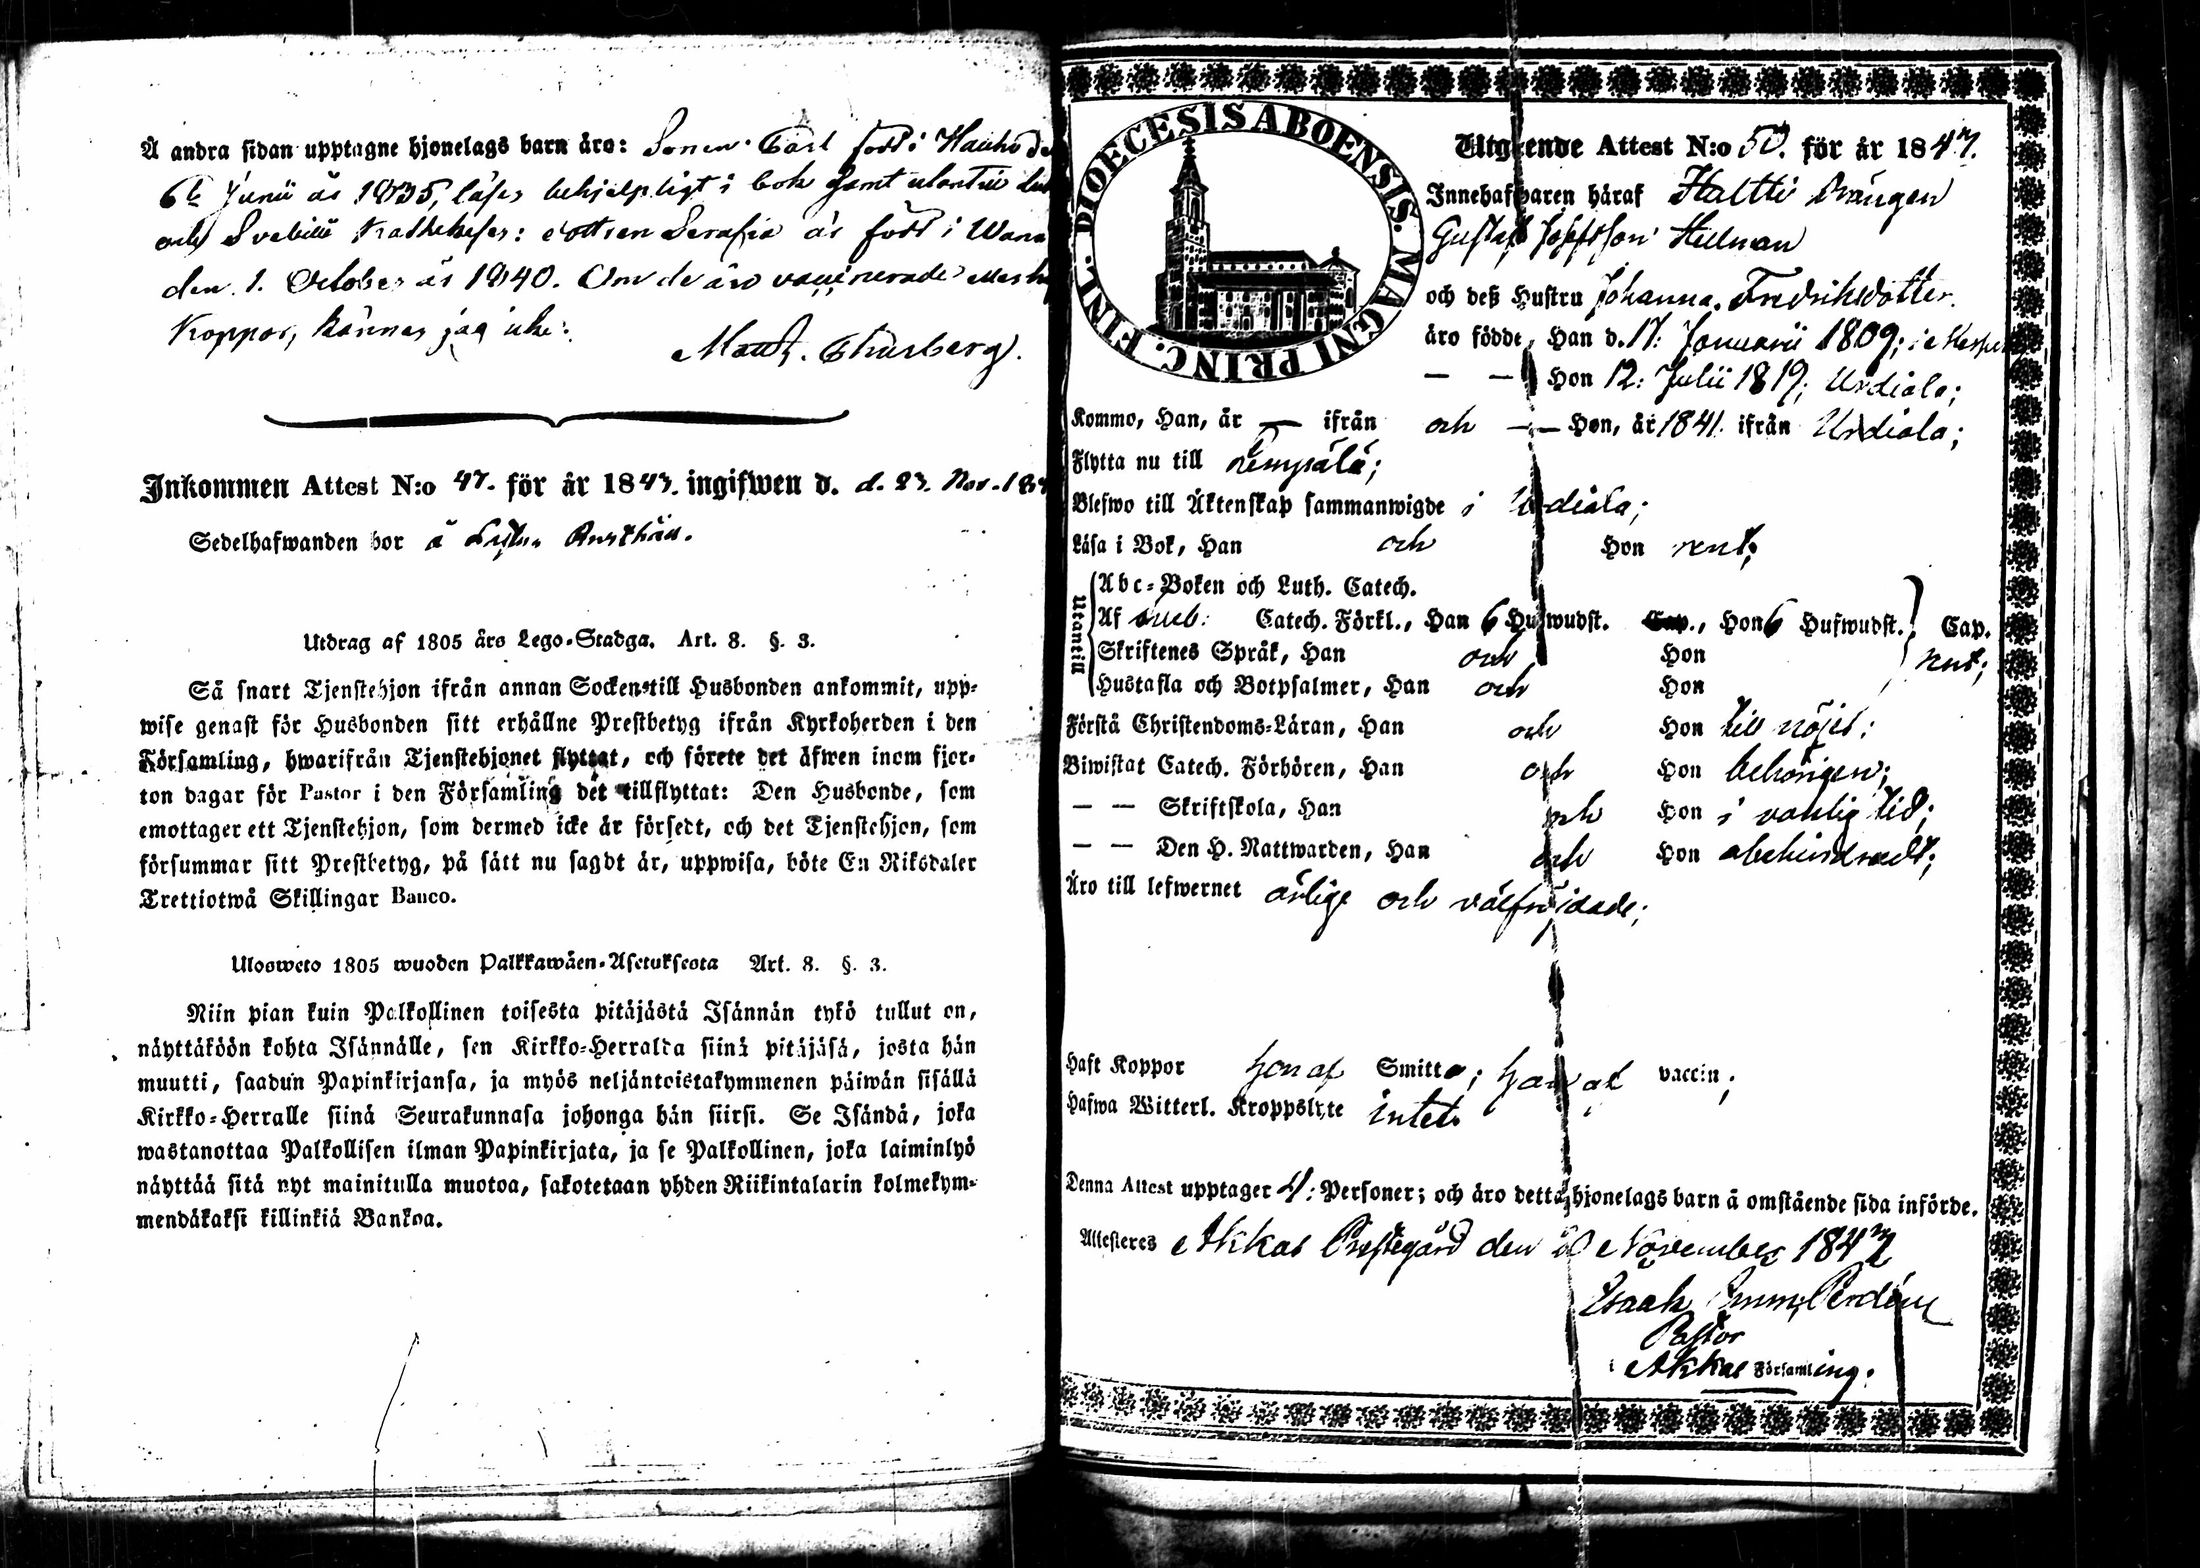 Å andra sidan upptagne hjonelags barn äro: Sonen Carl född i Hauho
6te Junii år 1835, läser behjelpligt i bok samt utantill
och Svebilii Kathekes: dottren Serafia är född i
den 1. October år 1840. Om de äro vaccinerade eller haft
Koppor, känner jag icke.
Inkommen Attest N:o 47. för år 1843. ingifwen d. d. 23. Nov.
Sedelhafwanden bor å
Utdrag af 1805 års Lego-Stadga. Art. 8. §. 3.
Så snart Tjenstehjon ifrån annan Socken till Husbonden ankommit, upp-
wise genast för Husbonden sitt erhållne Prestbetyg ifrån Kyrkoherden i den
Församling, hwarifrån Tjenstehjonet flyttat, och förete det äfwen inom fjor-
ton dagar för Pastor i den Församling det tillflyttat: Den Husbonde, som
emottager ett Tjenstehjon, som dermed icke är försedt, och det Tjenstehjon, som
försummar sitt Prestbetyg, på sätt nu sagdt är, uppwisa, böte En Riksdaler
Trettiotwå Skillingar Banco.
Ulosweto 1805 wuoden Palkkawäen-Asetuksesta Art. 8. §. 3.
Niin pian kuin Palkollinen toisesta pitäjästä Isännän tykö tullut on,
näyttäköön kohta Isännälle, sen Kirkko-Herralta siinä pitäjäsä, josta hän
muutti, saadun Papinkirjansa, ja myös neljäntoistakymmenen päiwän sisällä
Kirkko-Herralle siinä Seurakunnasa johonga hän siirsi. Se Isändä, joka
wastanottaa Palkollisen ilman Papinkirjata, ja se Palkollinen, joka laiminlyö
näyttää sitä nyt mainitulla muotoa, sakotetaan yhden Riikintalarin kolmekym-
mendäkaksi killinkiä Bankoa.
DIOECESIS ABOENSIS. MAGNI PRINC. FINL.
Utgående Attest N:o 50. för år 18
Innehafwaren häraf Haltti Drängen
Gustaf Josefsson Hellman
och deß Hustru Johanna Fredriksdotter.
äro födde, Han d. 17: Januarii 1809; i
— — Hon 12: Julii 1819; Urdiala;
Kommo, Han, år — ifrån och — Hon, år 1841 ifrån Urdiala;
Flytta nu till Lempälä;
Blefwo till Äktenskap sammanwigde i Urdiala;
Läsa i Bok, Han och Hon rent;
Utantill
Abc-Boken och Luth. Catech.
Af Sveb: Catech. Förkl., Han 6 Hufwudst. Cap., Hon 6 Hufwudst. Cap.
Skriftenes Språk, Han och Hon rent;
Hustafla och Botpsalmer, Han och Hon
Förstå Christendoms-Läran, Han och Hon till nöjes:
Biwistat Catech. Förhören, Han och Hon behörigen;
— — Skriftskola, Han och Hon i vanlig tid;
— — Den H. Nattwarden, Han och Hon obehindradt;
Äro till lefwernet ärlige och välfrejdade;
Haft Koppor Hon af Smitta; Han af vaccin;
Hafwa Witterl. Kroppslyte intet.
Denna Attest upptager 4: Personer; och äro detta hjonelags barn å omstående sida införde.
Attesteres Akkas Prestegård den 20 November 184
Isaak
Pastor
i Akkas Församling.